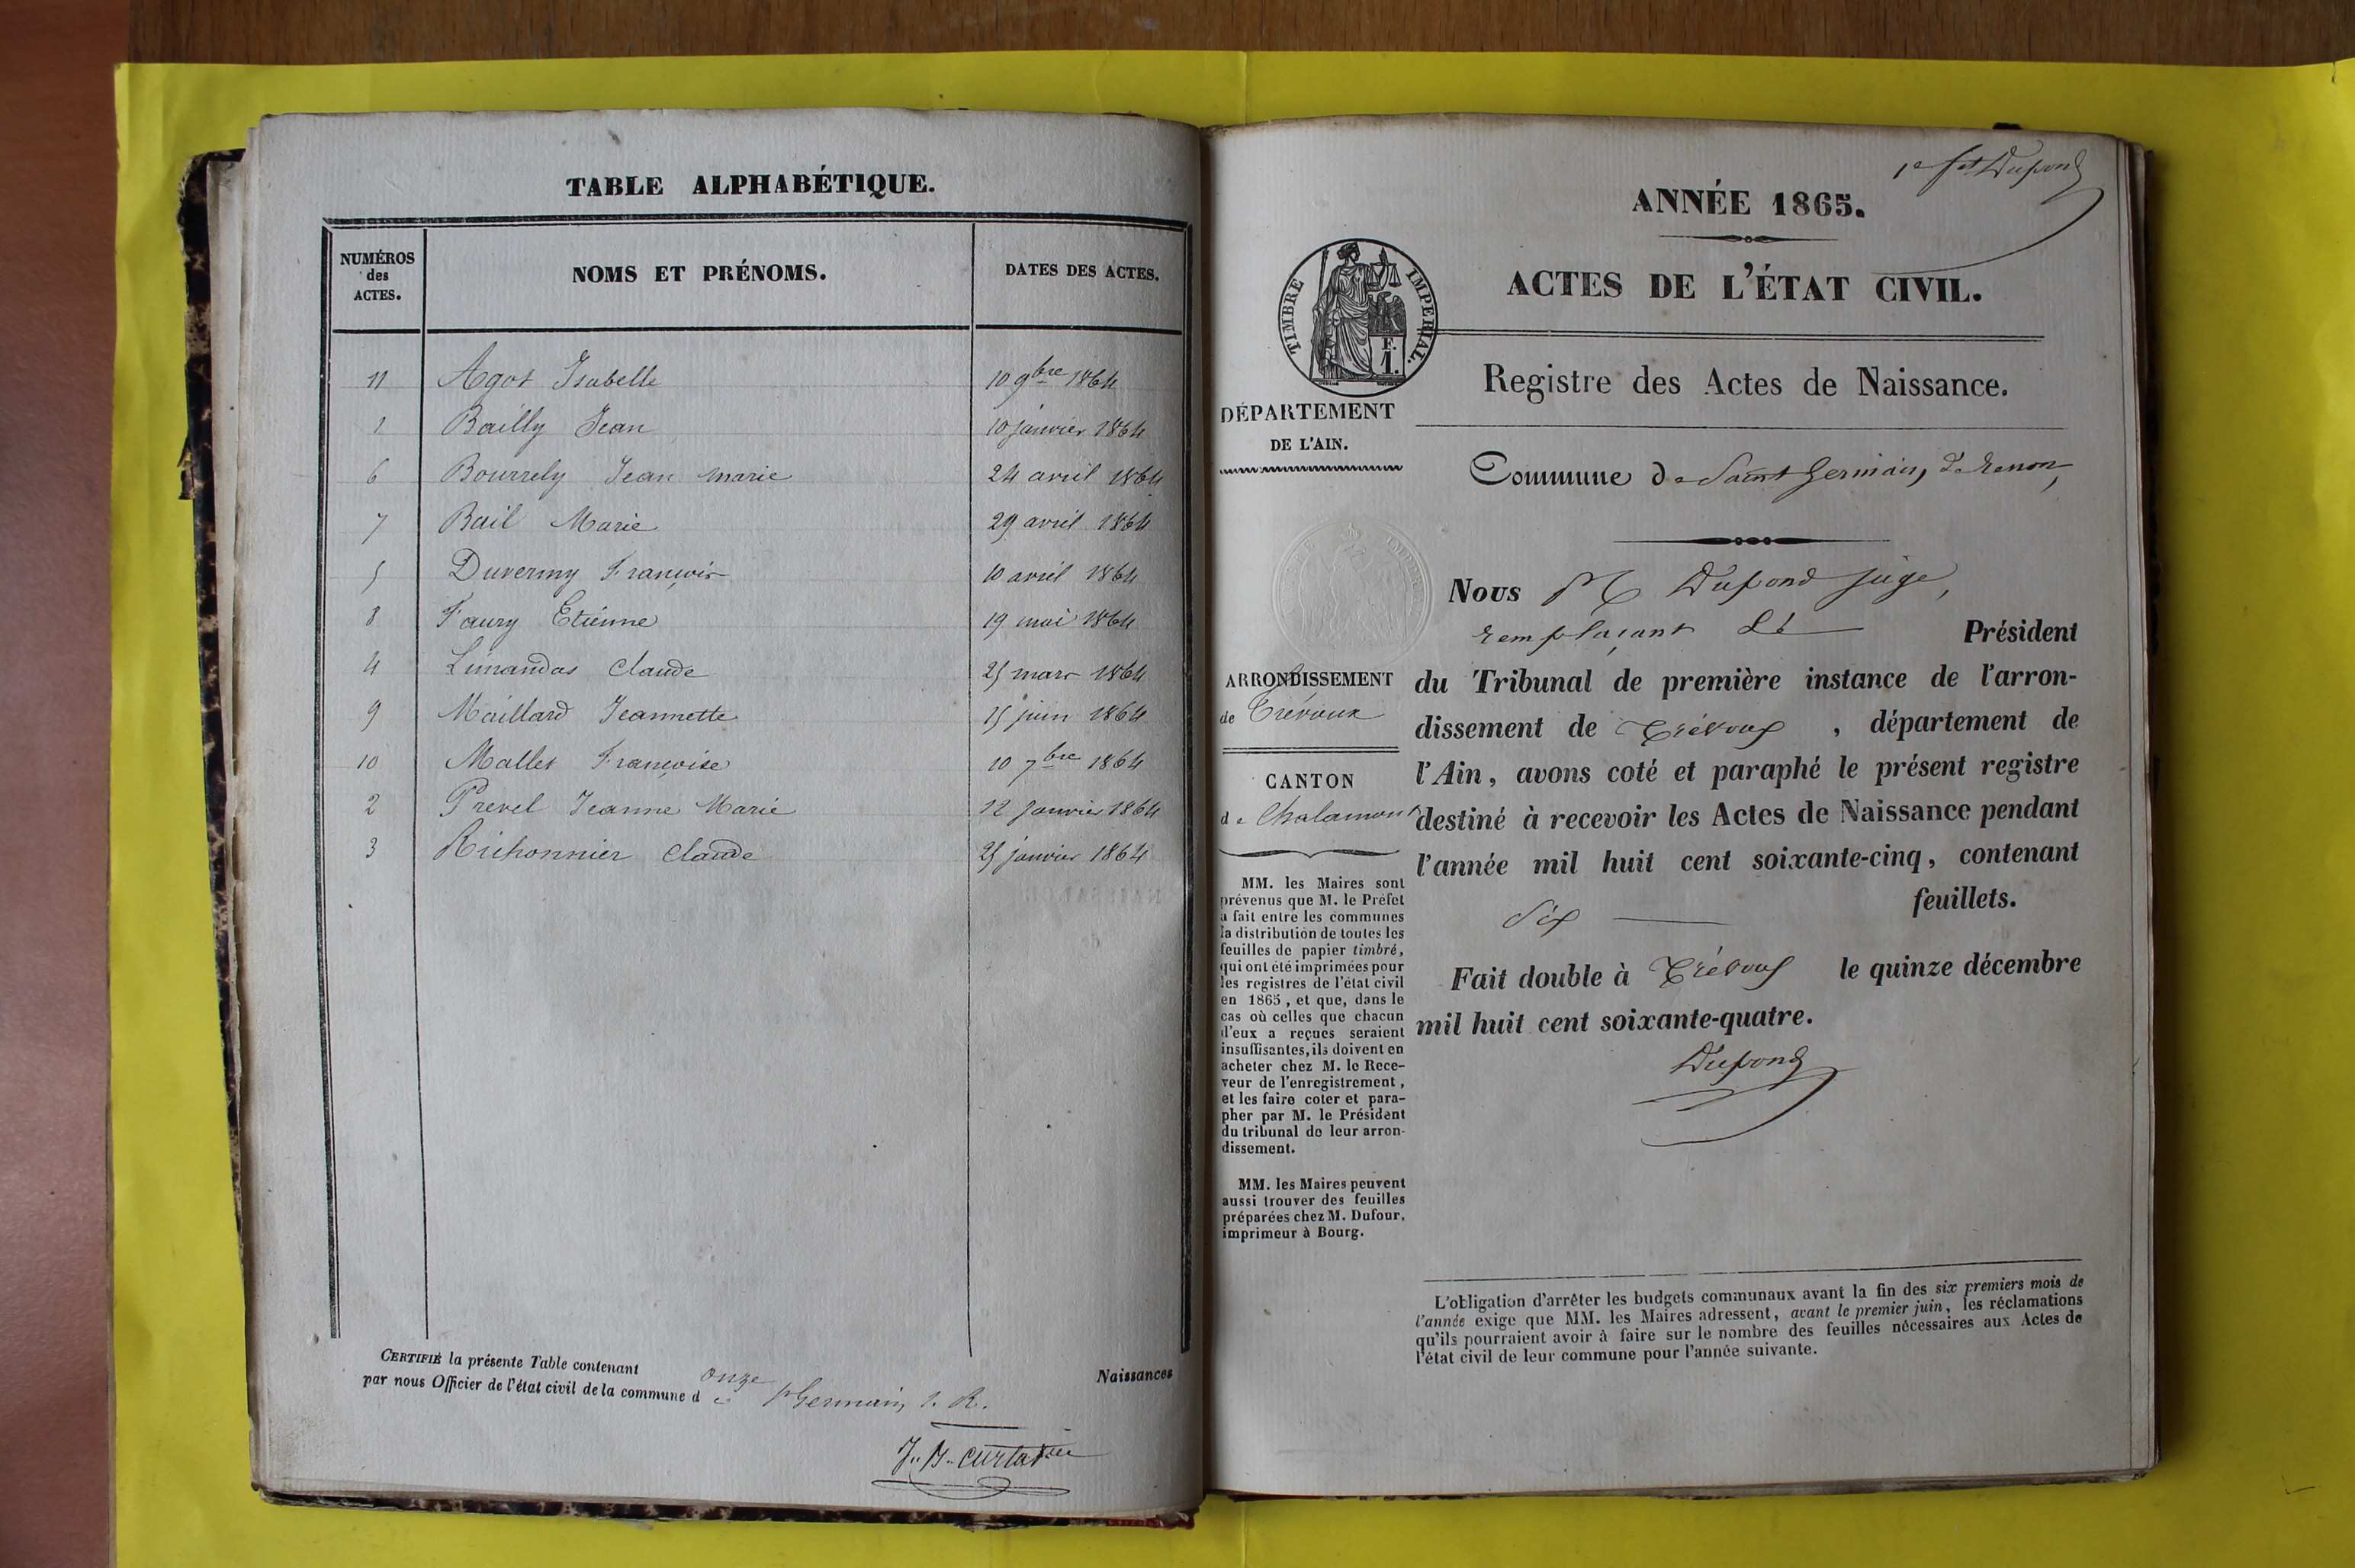 TABLE ALPHABÉTIQUE.
NUMÉROS des ACTES. NOMS ET PRÉNOMS. DATES DES ACTES.
11 Agot Isabelle 10 9bre 1864
1 Bailly Jean 10 janvier 1864
6 Bourrely Jean marie 24 avril 1864
7 Bail Marie 29 avril 1864
5 Duvermy François 10 avril 1864
8 Faury Etienne 19 mai 1864
4 Limandas Claude 25 mars 1864
9 Maillard Jeannette 15 juin 1864
10 Mallet Françoise 10 7bre 1864
2 Prevel Jeanne Marie 12 janvier 1864
3 Richonnier Claude 25 janvier 1864
CERTIFIÉ la présente Table contenant onze Naissances
par nous Officier de l'état civil de la commune de St Germain, s. R.
1e ft Dupond
ANNÉE 1865.
ACTES DE L'ÉTAT CIVIL.
TIMBRE IMPERIAL.
F.
1.
Registre des Actes de Naissance.
DÉPARTEMENT
DE L'AIN.
Commune de Saint Germain, s. Renon,
ARRONDISSEMENT
de Trévoux
CANTON
de Chalamont
MM. les Maires sont
prévenus que M. le Préfet
a fait entre les communes
la distribution de toutes les
feuilles de papier timbré,
qui ont été imprimées pour
les registres de l'état civil
en 1865, et que, dans le
cas où celles que chacun
d'eux a reçues seraient
insuffisantes, ils doivent en
acheter chez M. le Rece-
veur de l'enregistrement,
et les faire coter et para-
pher par M. le Président
du tribunal de leur arron-
dissement.
MM. les Maires peuvent
aussi trouver des feuilles
préparées chez M. Dufour,
imprimeur à Bourg.
Nous M Dupond juge,
remplaçant le Président
du Tribunal de première instance de l'arron-
dissement de Trévoux, département de
l'Ain, avons coté et paraphé le présent registre
destiné à recevoir les Actes de Naissance pendant
l'année mil huit cent soixante-cinq, contenant
six feuillets.
Fait double à Trévoux le quinze décembre
mil huit cent soixante-quatre.
Dupond
L'obligation d'arrêter les budgets communaux avant la fin des six premiers mois de
l'année exige que MM. les Maires adressent, avant le premier juin, les réclamations
qu'ils pourraient avoir à faire sur le nombre des feuilles nécessaires aux Actes de
l'état civil de leur commune pour l'année suivante.